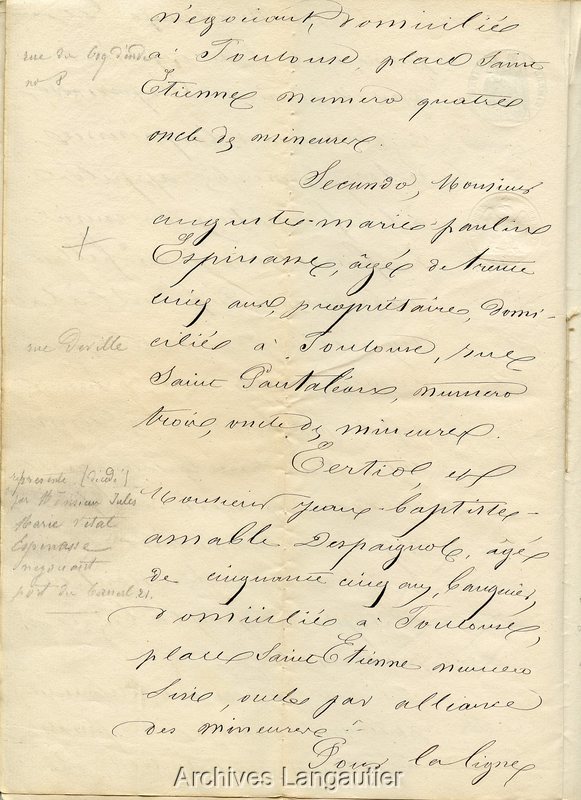 négociant, domicilié
à Toulouse, place Saint
Étienne numéro quatre
oncle des mineures.
Secundo, Monsieur
auguste-marie-paulin
Espinasse, âgé de trente
cinq ans, propriétaire, domi-
cilié à Toulouse, rue
Saint Pantaléon, numéro
trois, oncle des mineures.
Tertio, et
Monsieur Jean-baptiste-
amable Despaignol, âgé
de cinquante cinq ans, banquier,
domicilié à Toulouse,
place Saint Étienne numéro
six, oncle par alliance
des mineures
Pour la ligne
rue du Coq d'inde
no 8
rue Deville
représenté (décédé)
par Mr Jules
Marie Vital
Espinasse
négociant
port du Canal 21.
Archives Langautier